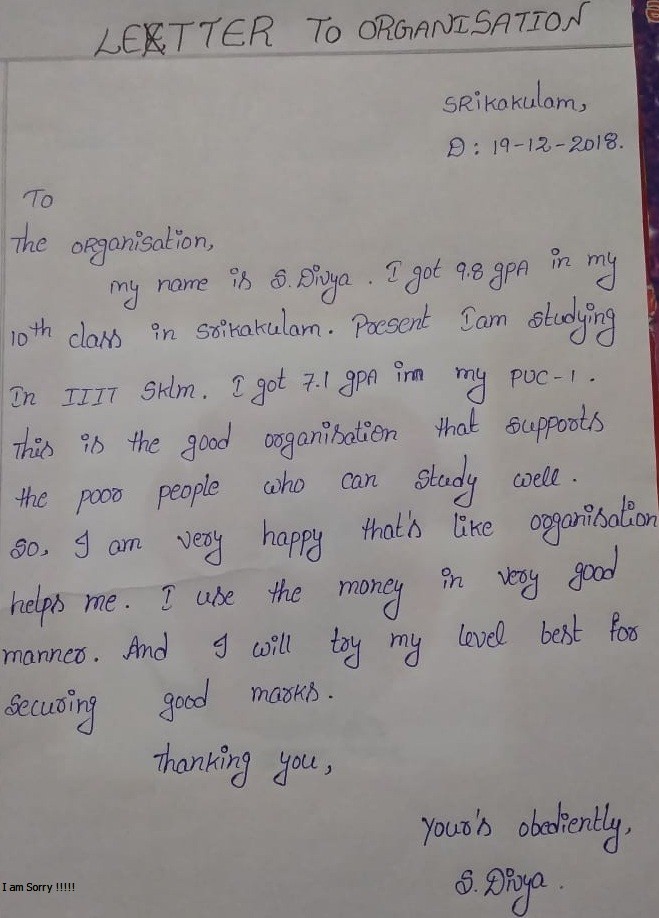 LETTER TO ORGANISATION
Srikakulam,
D: 19-12-2018.
To
The organisation,
my name is S. Divya. I got 9.8 gpA in my
10th class in Srikakulam. Present I am studying
In IIIT Sklm. I got 7.1 gpA inn my PUC-1.
This is the good organisation that supports
the poor people who can study well.
so, I am very happy that's like organisation
helps me. I use the money in very good
manner. And I will try my level best for
securing good marks.
Thanking you,
Your's obediently,
S. Divya.
I am Sorry !!!!!